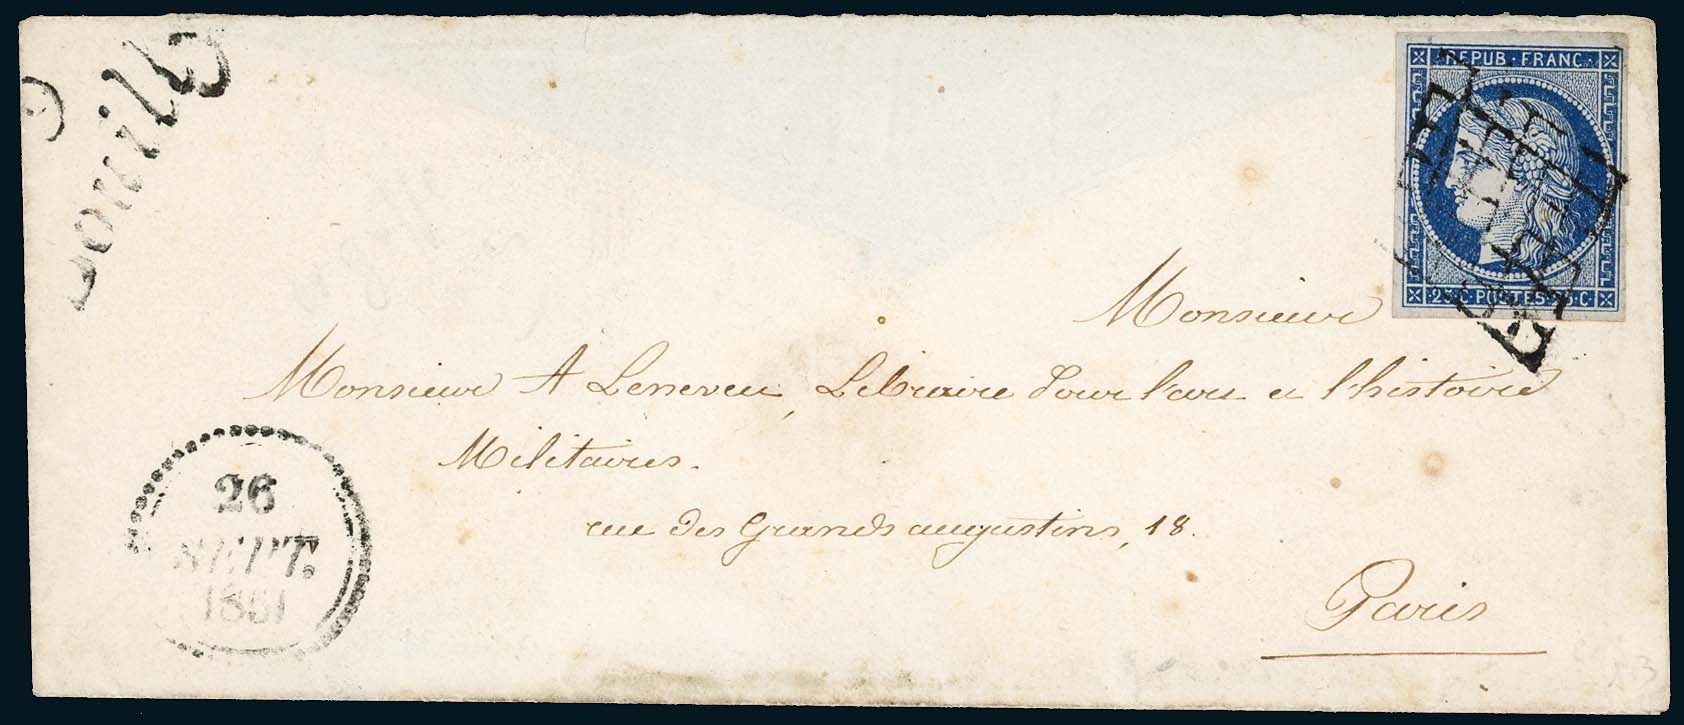 REPUB·FRANC·
25·C·POSTES·25·C·
Monsieur
Monsieur A Leneveu, Libraire Pour l'art et l'histoire
Militaires.
rue des grands augustins, 18.
Paris
26
SEPT.
1851